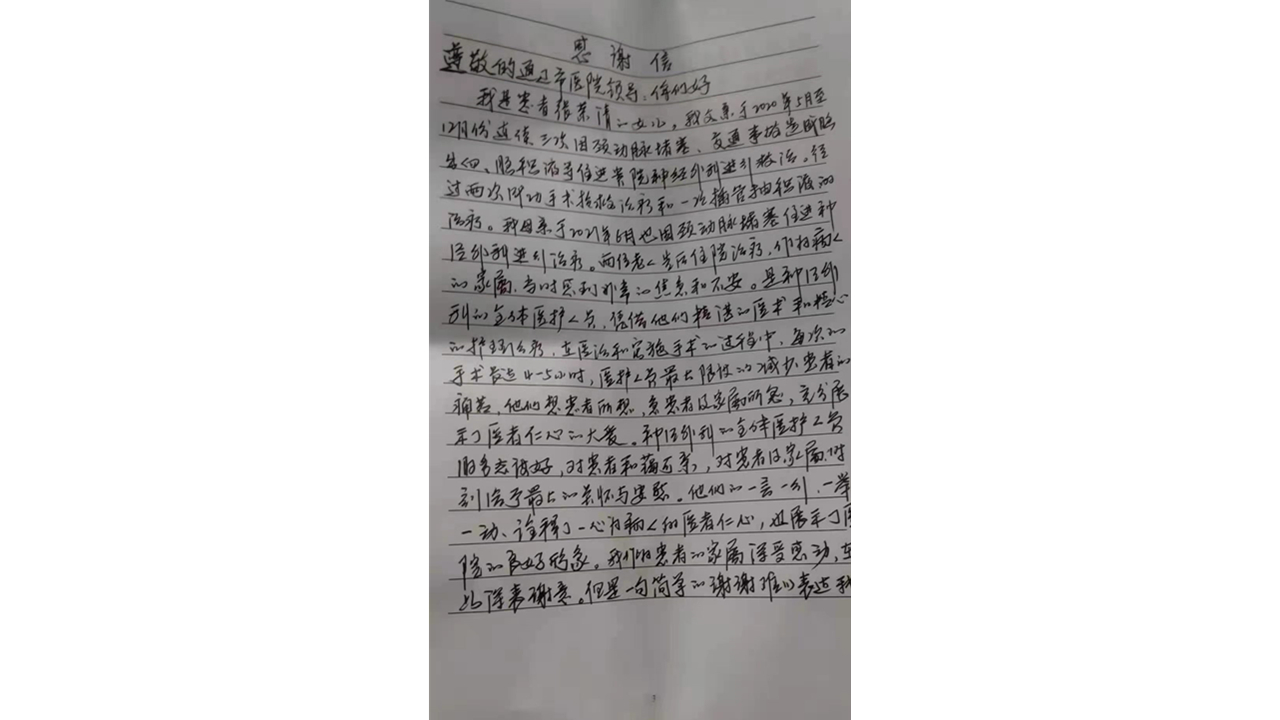 感谢信
尊敬的通辽市医院领导:你们好
我是患者张景清的女儿,我父亲于2020年5月至
12月份连续三次因颈动脉堵塞、交通事故造成脑
出血、脑积液等住进贵院神经外科进行救治。经
过两次成功手术抢救治疗和一次插管抽积液的
治疗。我母亲于2021年6月也因颈动脉堵塞住进神
经外科进行治疗。两位老人先后住院治疗,作为病人
的家属,当时感到非常的焦急和不安。是神经外
科的全体医护人员,凭借他们精湛的医术和精心
的护理治疗,在医治和实施手术的过程中,每次的
手术长达4-5小时,医护人员最大限度的减少患者的
痛苦,他们想患者所想,急患者及家属所急,充分展
示了医者仁心的大爱。神经外科的全体医护人员
服务态度好,对患者和蔼可亲,对患者及家属时
刻给予最大的关怀与安慰。他们的一言一行、一举
一动、诠释了一心为病人的医者仁心,也展示了医
院的良好形象。我们的患者的家属深受感动,在
此深表谢意。但是一句简单的谢谢难以表达我